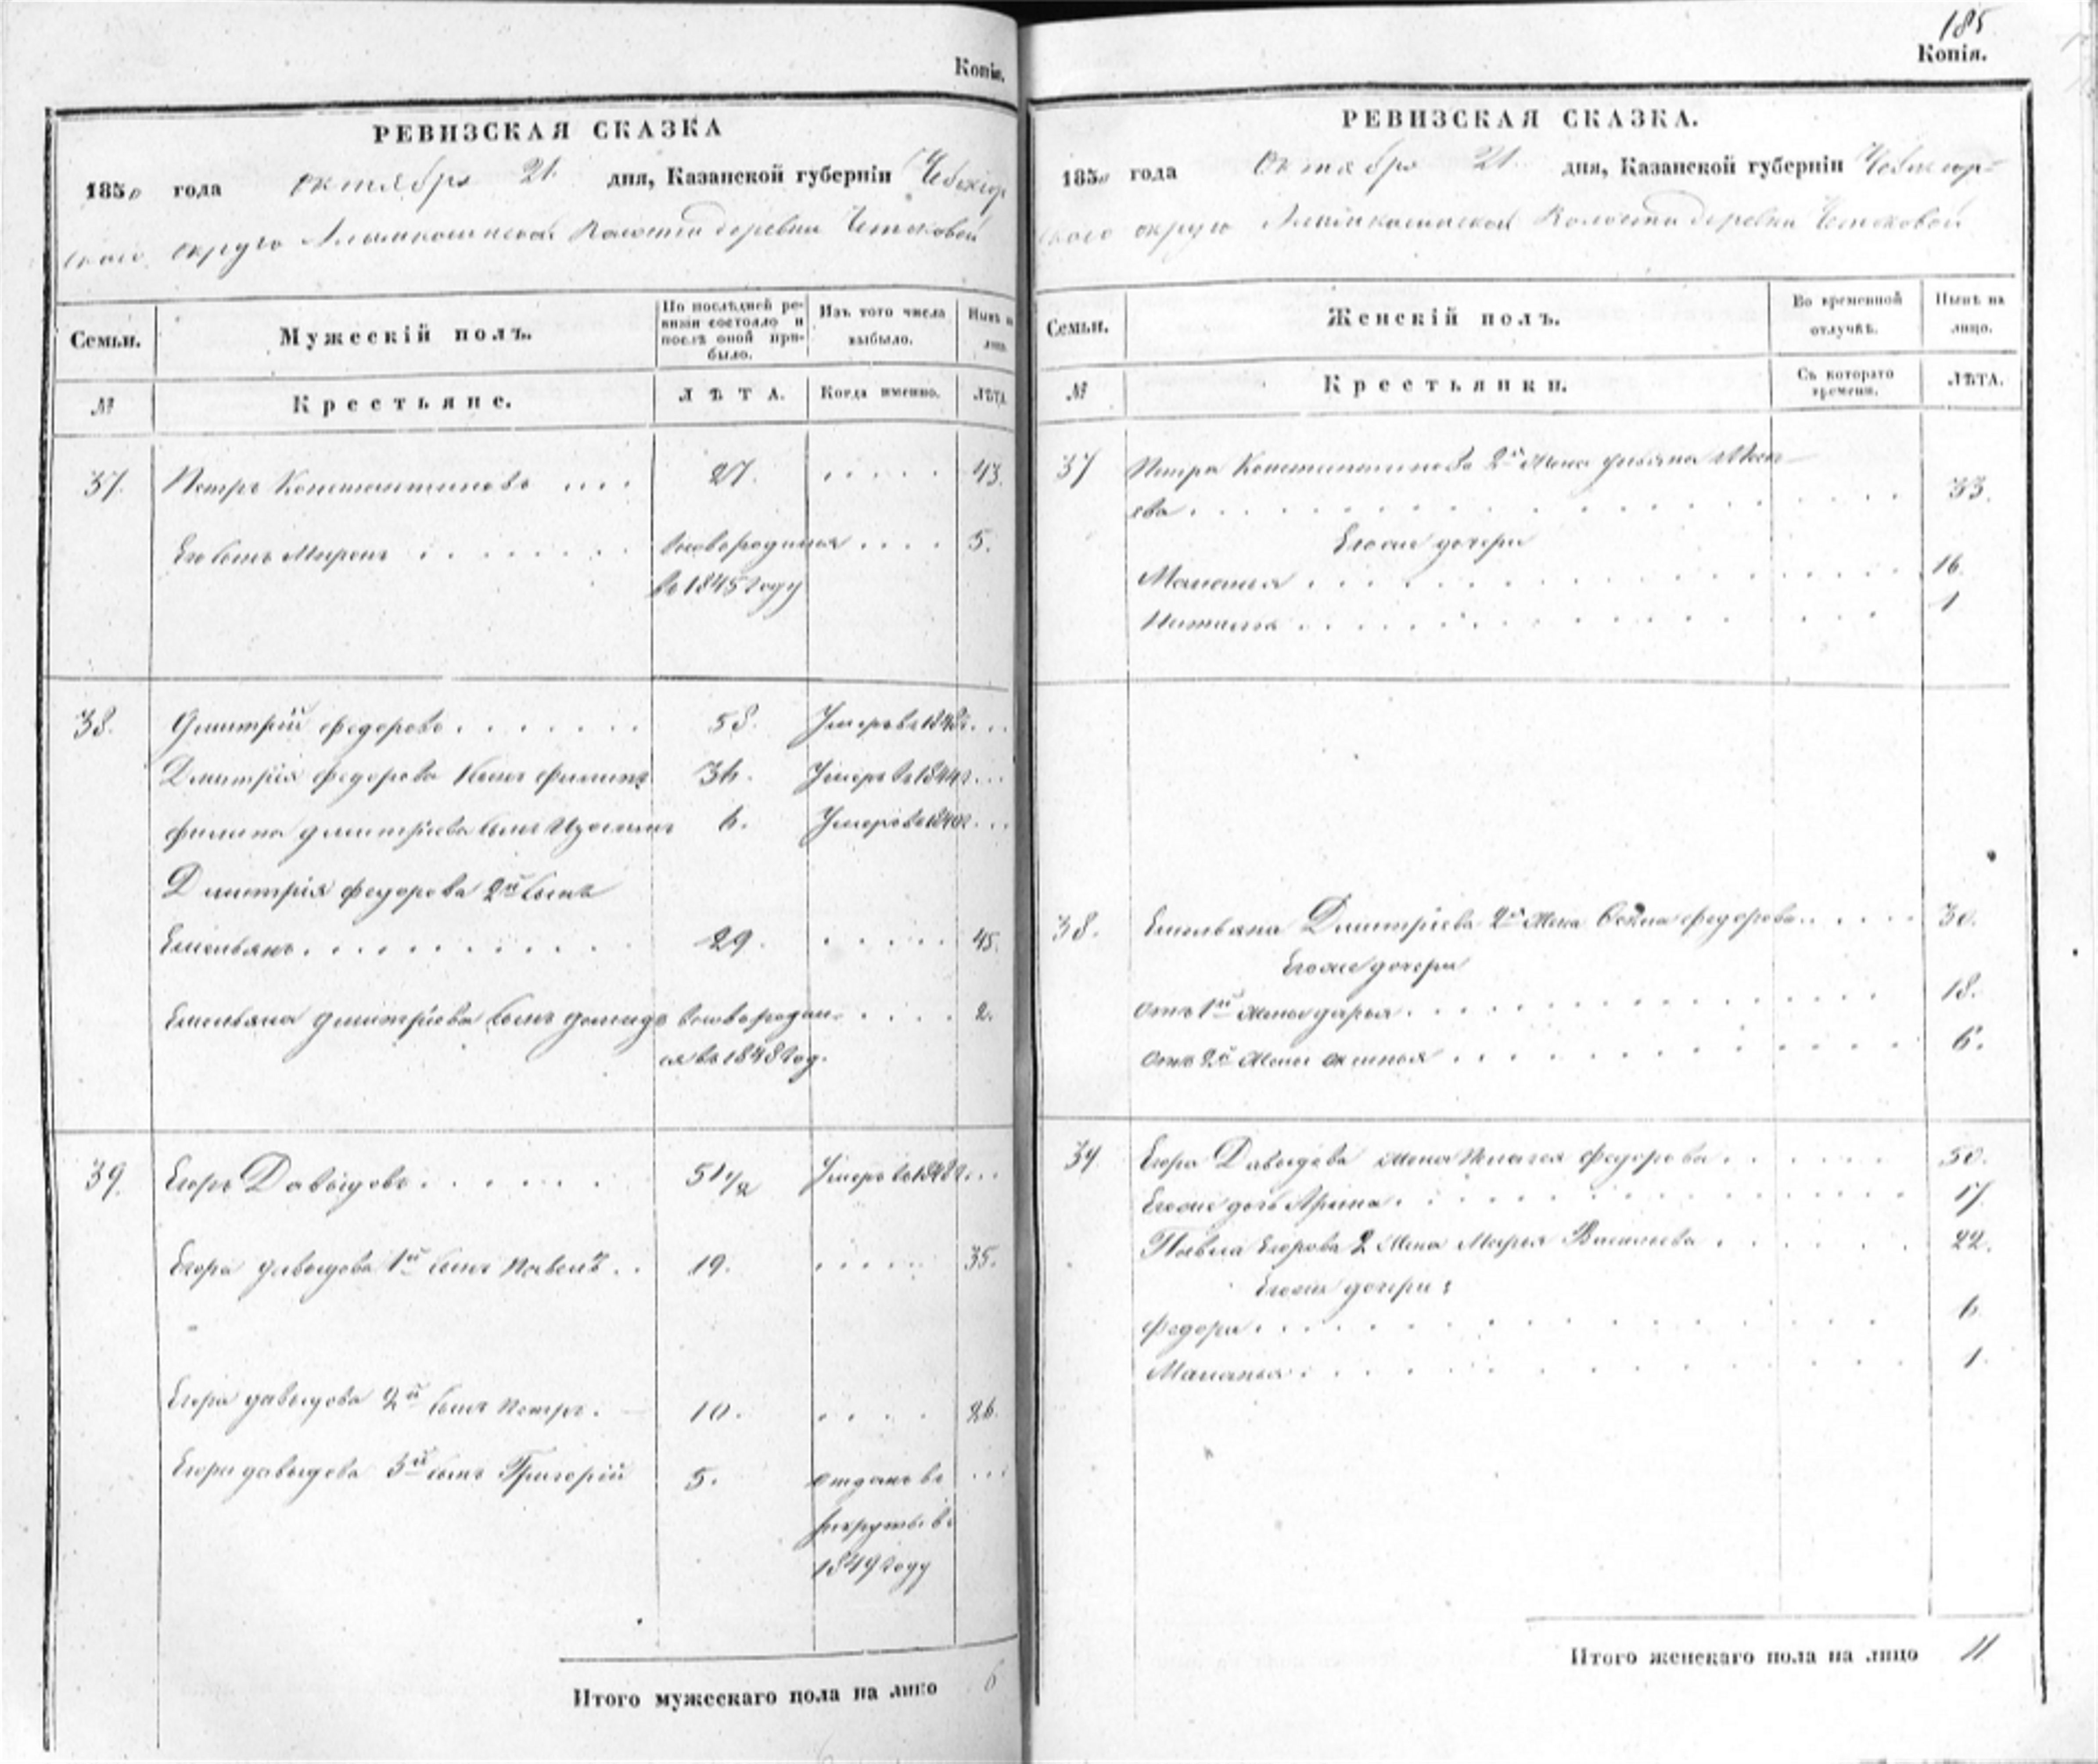 Копія.
РЕВИЗСКАЯ СКАЗКА
1850 года октября 21 дня, Казанской губерніи Чебоксар
скаго округа волости деревни
Семьи.
Мужескій полъ.
По послѣдней ре-
визіи состояло и
послѣ оной при-
было.
Изъ того числа
выбыло.
Нынѣ на
лицо.
№
Крестьяне.
ЛѢТА.
Когда именно.
ЛѢТА.
37. Петръ Константиновъ .... 27. ..... 43.
Его сынъ Миронъ ...... новорожденный .... 5.
въ 1845 году
38. Дмитрій Федоровъ ....... 58. Умеръ въ ...
Дмитрія Федорова сынъ Филипъ 36. Умеръ въ 1844 г...
Филипа Дмитріева сынъ 6. Умеръ въ 1840 г...
Дмитрія Федорова 2й сынъ
Емельянъ .......... 29. ..... 45.
Емельяна Дмитріева сынъ .... 2.
ся въ 1848 год.
39. Егоръ Давыдовъ ...... 51 1/2 Умеръ въ ...
Егора Давыдова 1й сынъ Павелъ .. 19. ..... 35.
Егора Давыдова 2й сынъ Петръ. 10. .... 26.
Егора Давыдова 3й сынъ Григорій 5. отданъ въ ...
рекруты въ
1849 году
Итого мужескаго пола на лицо 6
185
Копія.
РЕВИЗСКАЯ СКАЗКА.
1850 года Октября 21. дня, Казанской губерніи Чебоксар-
скаго округа волости деревни
Семьи.
Женскій полъ.
Во временной
отлучкѣ.
Нынѣ на
лицо.
№
Крестьянки.
Съ котораго
времени.
ЛѢТА.
37 Петра Константинова 2я жена
ева . . . . . . . . . . 33.
Его же дочери
Маланья . . . . . . . . . . 16.
Наталья . . . . . . . . . . 1
38. Емельяна Дмитріева 2я жена Федорова ..... 30.
Его же дочери
отъ 1й жены Дарья . . . . . . . . . . 18.
отъ 2й жены . . . . . . . . . . 6.
39 Егора Давыдова жена Пелагея Федорова ..... 50.
Его же дочь Арина . . . . . . . . . . 17.
Павла Егорова 2 жена Марья Васильева ..... 22.
Его же дочери:
Федора . . . . . . . . . . 6
Маланья . . . . . . . . . . 1.
Итого женскаго пола на лицо 11